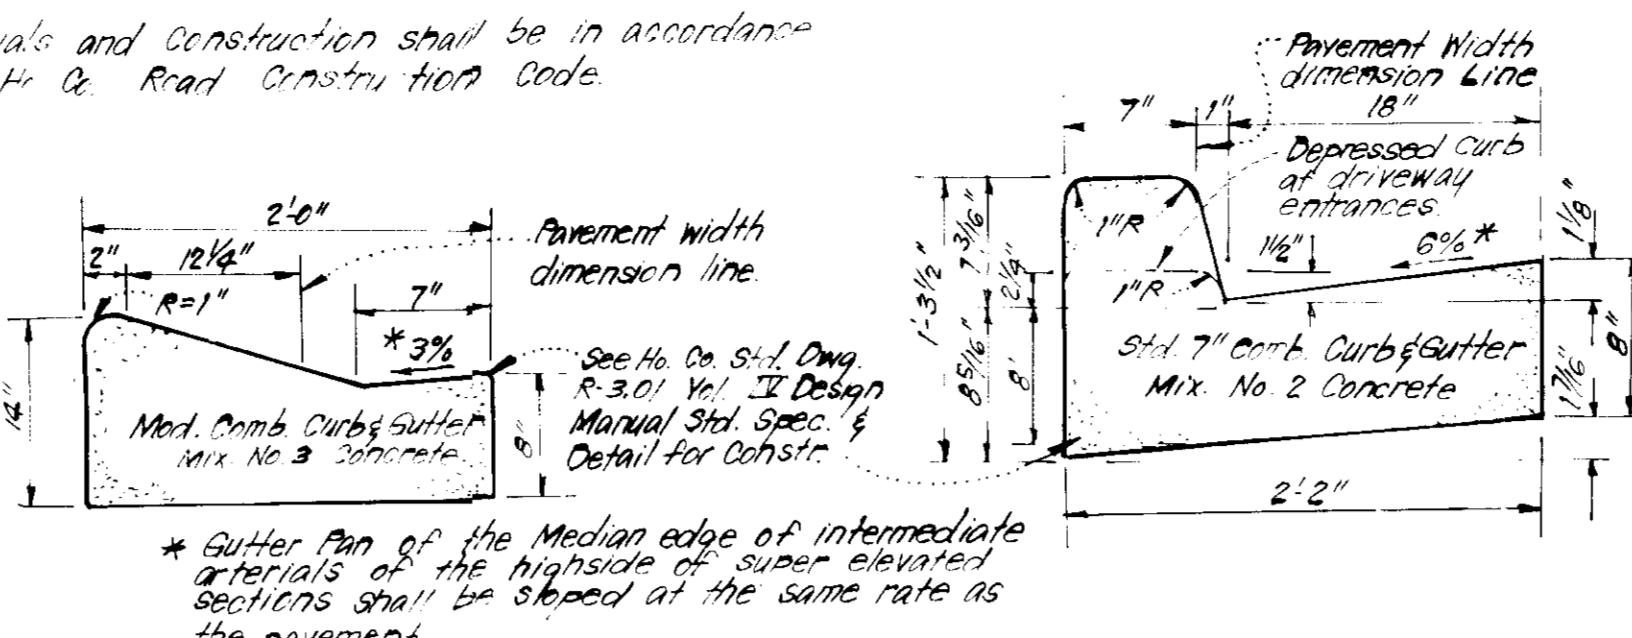 and Construction shall be in accordance
Ho Co. Road Construction Code.
2'-0"
2"
12 1/4"
Pavement width
dimension line.
R=1"
7"
* 3%
14"
8"
Mod. Comb. Curb & Gutter
Mix. No. 3 Concrete
See Ho. Co. Std. Dwg.
R-3.01 Vol. IV Design
Manual Std. Spec. &
Detail for Constr.
* Gutter Pan of the Median edge of intermediate
arterials of the highside of super elevated
sections shall be sloped at the same rate as
the pavement
Pavement Width
dimension Line
7"
1"
18"
Depressed Curb
at driveway
entrances.
1"R
1"R
1 1/2"
6% *
1 1/8"
1'-3 1/2"
7 3/16"
2 1/4"
8 5/16"
8'
8"
Std. 7" comb. Curb & Gutter
Mix. No. 2 Concrete
2'-2"